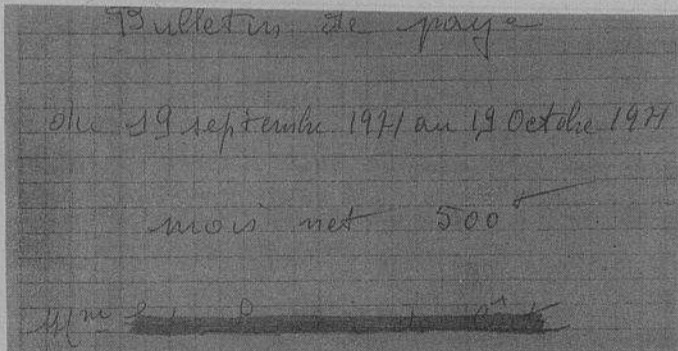 Bulletin de paye
du 19 septembre 1971 au 19 Octobre 1971
mois net 500 F
Mme